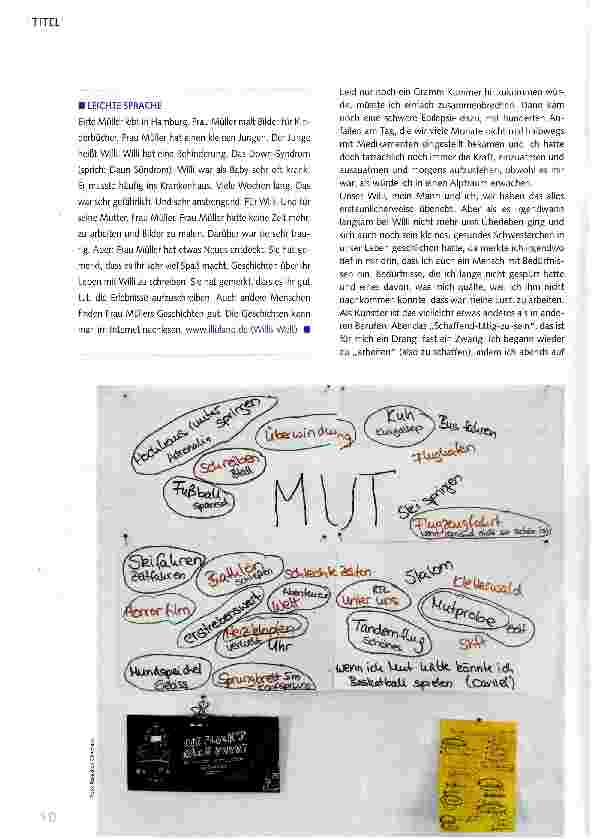 TITEL
■ LEICHTE SPRACHE
Birte Müller lebt in Hamburg. Frau Müller malt Bilder für Kin-
derbücher. Frau Müller hat einen kleinen Jungen. Der Junge
heißt Willi. Willi hat eine Behinderung. Das Down-Syndrom
(sprich: Daun Sündrom). Willi war als Baby sehr oft krank.
Er musste häufig ins Krankenhaus. Viele Wochen lang. Das
war sehr gefährlich. Und sehr anstrengend. Für Willi. Und für
seine Mutter, Frau Müller. Frau Müller hatte keine Zeit mehr,
zu arbeiten und Bilder zu malen. Darüber war sie sehr trau-
rig. Aber: Frau Müller hat etwas Neues entdeckt. Sie hat ge-
merkt, dass es ihr sehr viel Spaß macht, Geschichten über ihr
Leben mit Willi zu schreiben. Sie hat gemerkt, dass es ihr gut
tut, die Erlebnisse aufzuschreiben. Auch andere Menschen
finden Frau Müllers Geschichten gut. Die Geschichten kann
man im Internet nachlesen. www.illuland.de (Willis Welt) ■
Leid nur noch ein Gramm Kummer hinzukommen wür-
de, müsste ich einfach zusammenbrechen. Dann kam
noch eine schwere Epilepsie dazu, mit hunderten An-
fällen am Tag, die wir viele Monate nicht mal halbwegs
mit Medikamenten eingestellt bekamen und ich hatte
doch tatsächlich noch immer die Kraft, einzuatmen und
auszuatmen und morgens aufzustehen, obwohl es mir
war, als würde ich in einen Alptraum erwachen.
Unser Willi, mein Mann und ich, wir haben das alles
erstaunlicherweise überlebt. Aber als es irgendwann
langsam bei Willi nicht mehr ums Überleben ging und
sich auch noch ein kleines, gesundes Schwesterchen in
unser Leben geschlichen hatte, da merkte ich irgendwo
tief in mir drin, dass ich auch ein Mensch mit Bedürfnis-
sen bin. Bedürfnisse, die ich lange nicht gespürt hatte
und eines davon, was mich quälte, weil ich ihm nicht
nachkommen konnte, dass war meine Lust, zu arbeiten.
Als Künstler ist das vielleicht etwas anderes als in ande-
ren Berufen. Aber das „Schaffend-tätig-zu-sein“, das ist
für mich ein Drang, fast ein Zwang. Ich begann wieder
zu „arbeiten“ (also zu schaffen), indem ich abends auf
Hochhaus runter springen
Adrenalin
Überwindung
Kuh
Bus fahren
Flughafen
Schreiben
Blatt
Fußball
spanisch
MUT
Ski springen
Flugzeugfahrt
Skifahren
Zeitfahren
Biathlon
schießen
schlechte Zeiten
Slalom
Kletterwald
Horrorfilm
erstrebenswert
Abenteuer
Welt
RTL
Unter uns
Mutprobe
Herzklopfen
verrückte Uhr
Tandemflug
Schönes
Stift
Mundspeichel
Gebiss
Sprungbrett 5m
Kopfsprung
wenn ich Mut hätte könnte ich
Basketball spielen (Daniel)
10